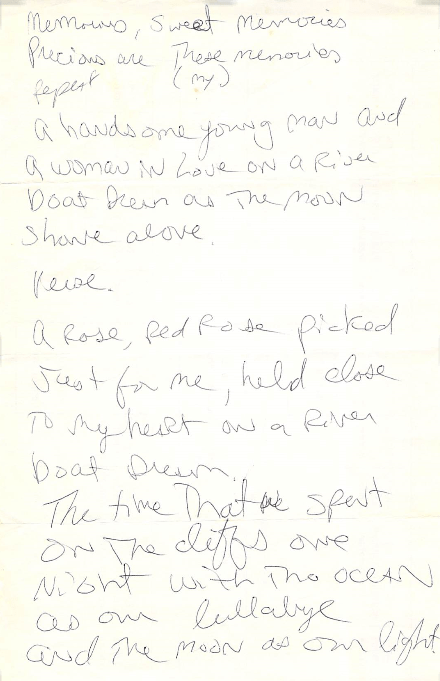 Memories, Sweet Memories
Precious are These memories
repeat (my)
A handsome young man and
a woman in Love on a River
boat Dream as The moon
Shone above.
Verse.
A Rose, Red Rose picked
Just for me, held close
To my heart on a River
boat Dream.
The time That we spent
on The cliffs one
Night with The ocean
as our lullabye
and The moon as our light